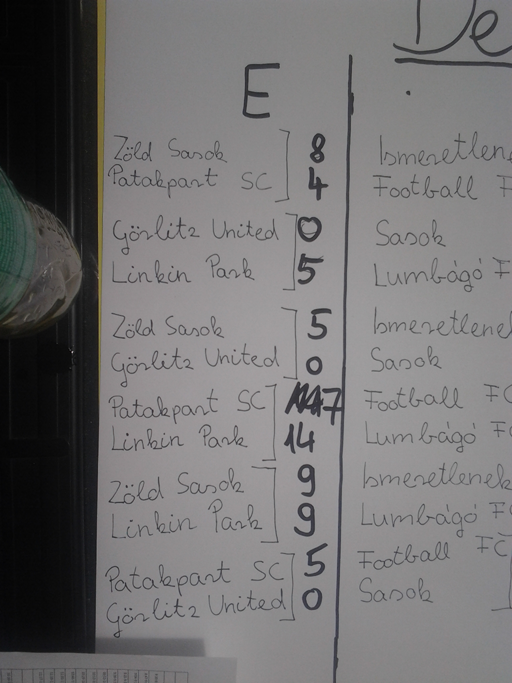 De
E
Zöld Sasok 8
Patakpart SC 4
Görlitz United 0
Linkin Park 5
Zöld Sasok 5
Görlitz United 0
Patakpart SC 7
Linkin Park 14
Zöld Sasok 9
Linkin Park 9
Patakpart SC 5
Görlitz United 0
Ismeretlene
Football F
Sasok
Lumbágó F
Ismeretlenek
Sasok
Football FC
Lumbágó F
Ismeretlenek
Lumbágó F
Football FC
Sasok